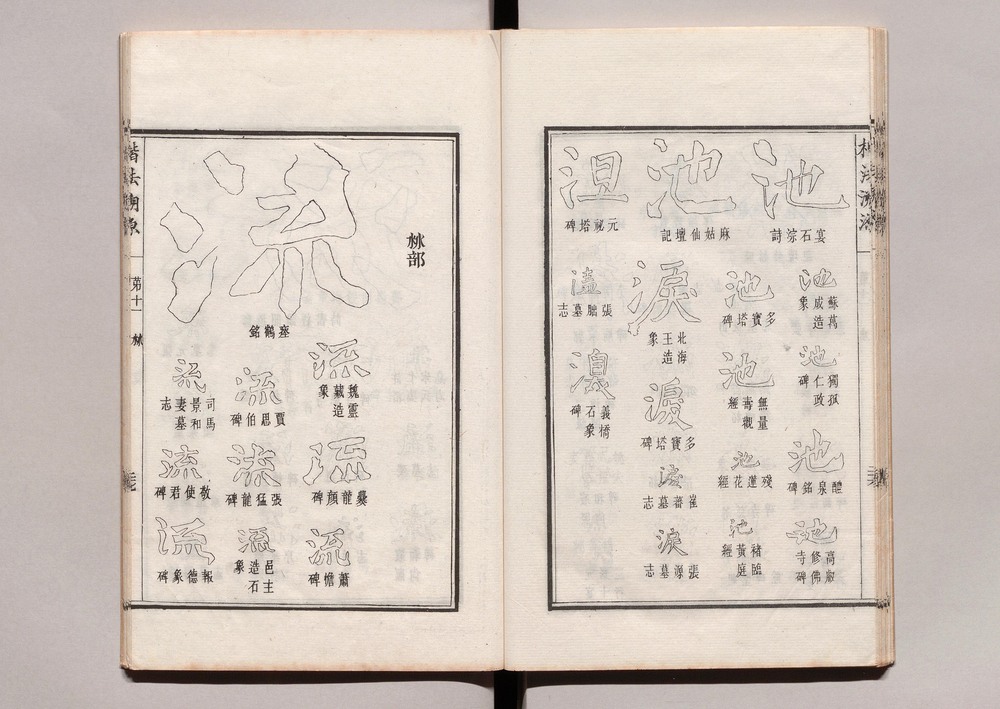 池
宴石淙詩
池
蘇萬
成造
象
池
獨孤
仁政
碑
池
醴泉銘碑
池
高㵎
修佛
寺碑
池
麻姑仙壇記
池
多寶塔碑
池
無量
壽觀
經
池
殘蓮花經
池
褚臨
黃庭
經
淚
北海
王造
象
淚
多寶塔碑
淚
崔蕃墓志
淚
張源墓志
元祕塔碑
張朏墓志
義橋
石象
碑
楷法溯源
第十一
沝
沝部
流
瘞鶴銘
流
魏靈
藏造
象
流
爨龍顏碑
流
蕭憺碑
流
賈思伯碑
流
張猛龍碑
流
邑主
造石
象
流
司馬
景和
妻墓
志
流
敬使君碑
流
報德象碑